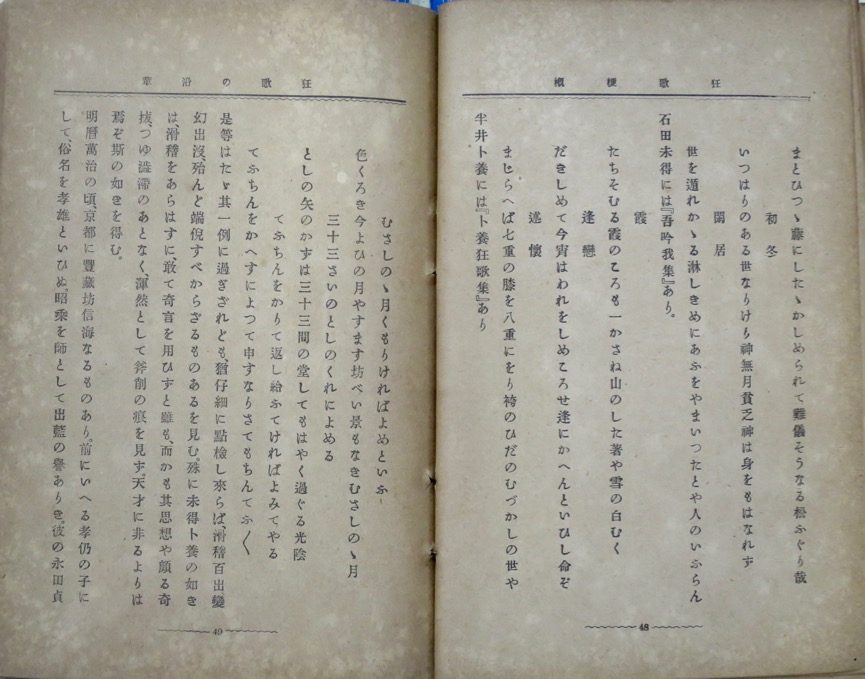 狂歌梗概
まとひつゝ藤にしたゝかしめられて難儀そうなる松ふぐり哉
初冬
いつはりのある世なりけり神無月貧乏神は身をもはなれず
閑居
世を遁れかゝる淋しきめにあふをやまいつたとや人のいふらん
石田未得には『吾吟我集』あり。
霞
たちそむる霞のころも一かさね山のした著や雪の白むく
逢戀
だきしめて今宵はわれをしめころせ逢にかへんといひし命ぞ
述懷
まじらへば七重の膝を八重にをり袴のひだのむづかしの世や
半井卜養には『卜養狂歌集』あり
48
狂歌の沿革
むさしのゝ月くもりければよめといふ
色くろき今よひの月やすます坊べい景もなきむさしのゝ月
三十三さいのとしのくれによめる
としの矢のかずは三十三間の堂してもはやく過ぐる光陰
てふちんをかりて返し給ふてければよみてやる
てふちんをかへすによつて申すなりさてもちんてふ〱
是等はたゞ其一例に過ぎざれども、猶仔細に點檢し來らば、滑稽百出變
幻出沒、殆んど端倪すべからざるものあるを見む。殊に未得卜養の如き
は、滑稽をあらはすに、敢て奇言を用ひずと雖も、而かも其思想や頗る奇
拔、つゆ澁滯のあとなく、渾然として斧削の痕を見ず。天才に非るよりは
焉ぞ斯の如きを得む。
明曆萬治の頃、京都に豐藏坊信海なるものあり。前にいへる孝仍の子に
して、俗名を孝雄といひぬ。昭乘を師として出藍の譽ありき。彼の永田貞
49